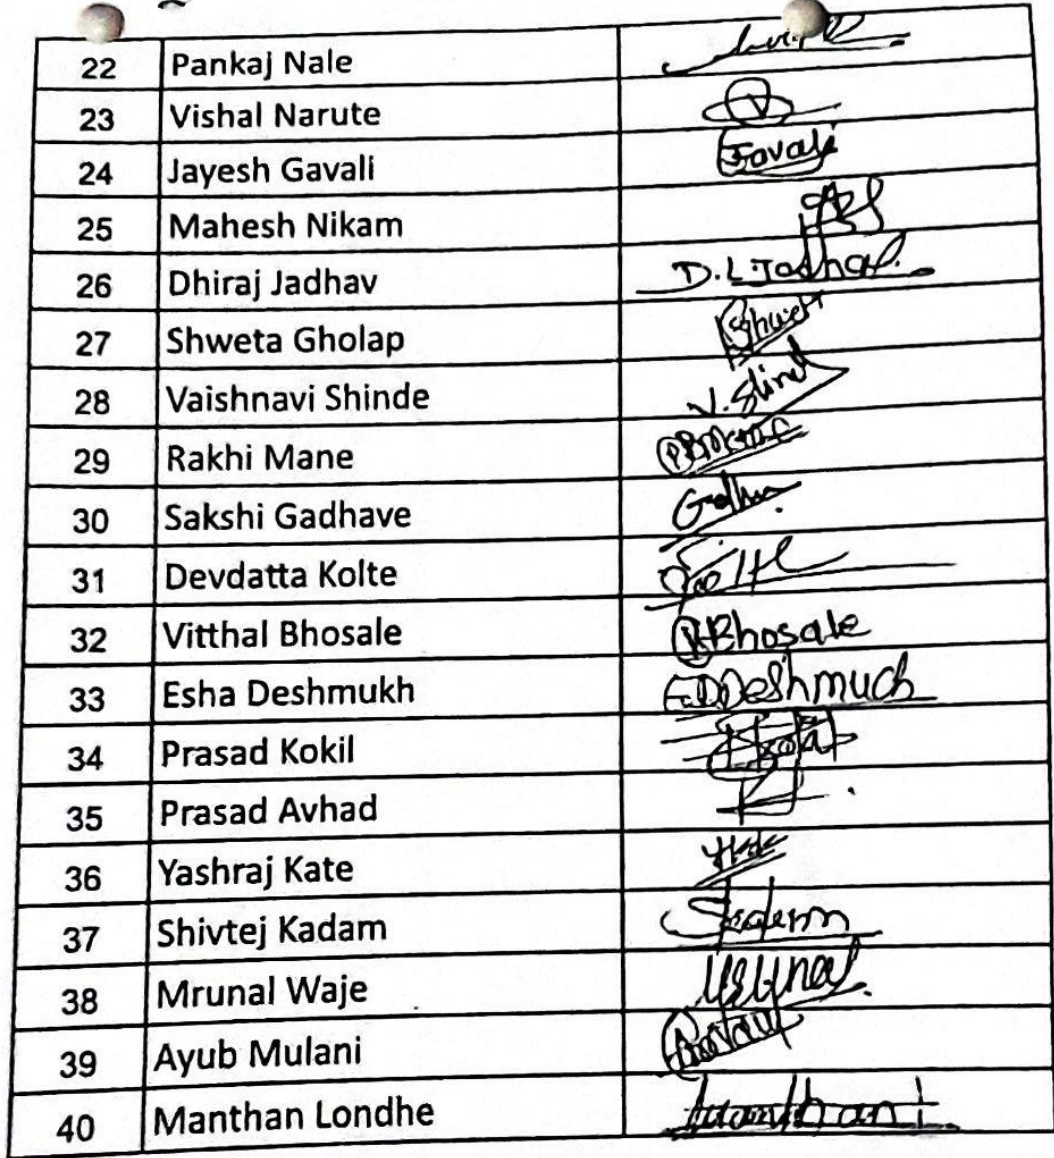 22 Pankaj Nale
23 Vishal Narute
24 Jayesh Gavali
25 Mahesh Nikam
26 Dhiraj Jadhav D.L.Jadhav.
27 Shweta Gholap
28 Vaishnavi Shinde V. Shind
29 Rakhi Mane
30 Sakshi Gadhave
31 Devdatta Kolte
32 Vitthal Bhosale Bhosale
33 Esha Deshmukh Deshmuch
34 Prasad Kokil
35 Prasad Avhad
36 Yashraj Kate
37 Shivtej Kadam
38 Mrunal Waje
39 Ayub Mulani
40 Manthan Londhe